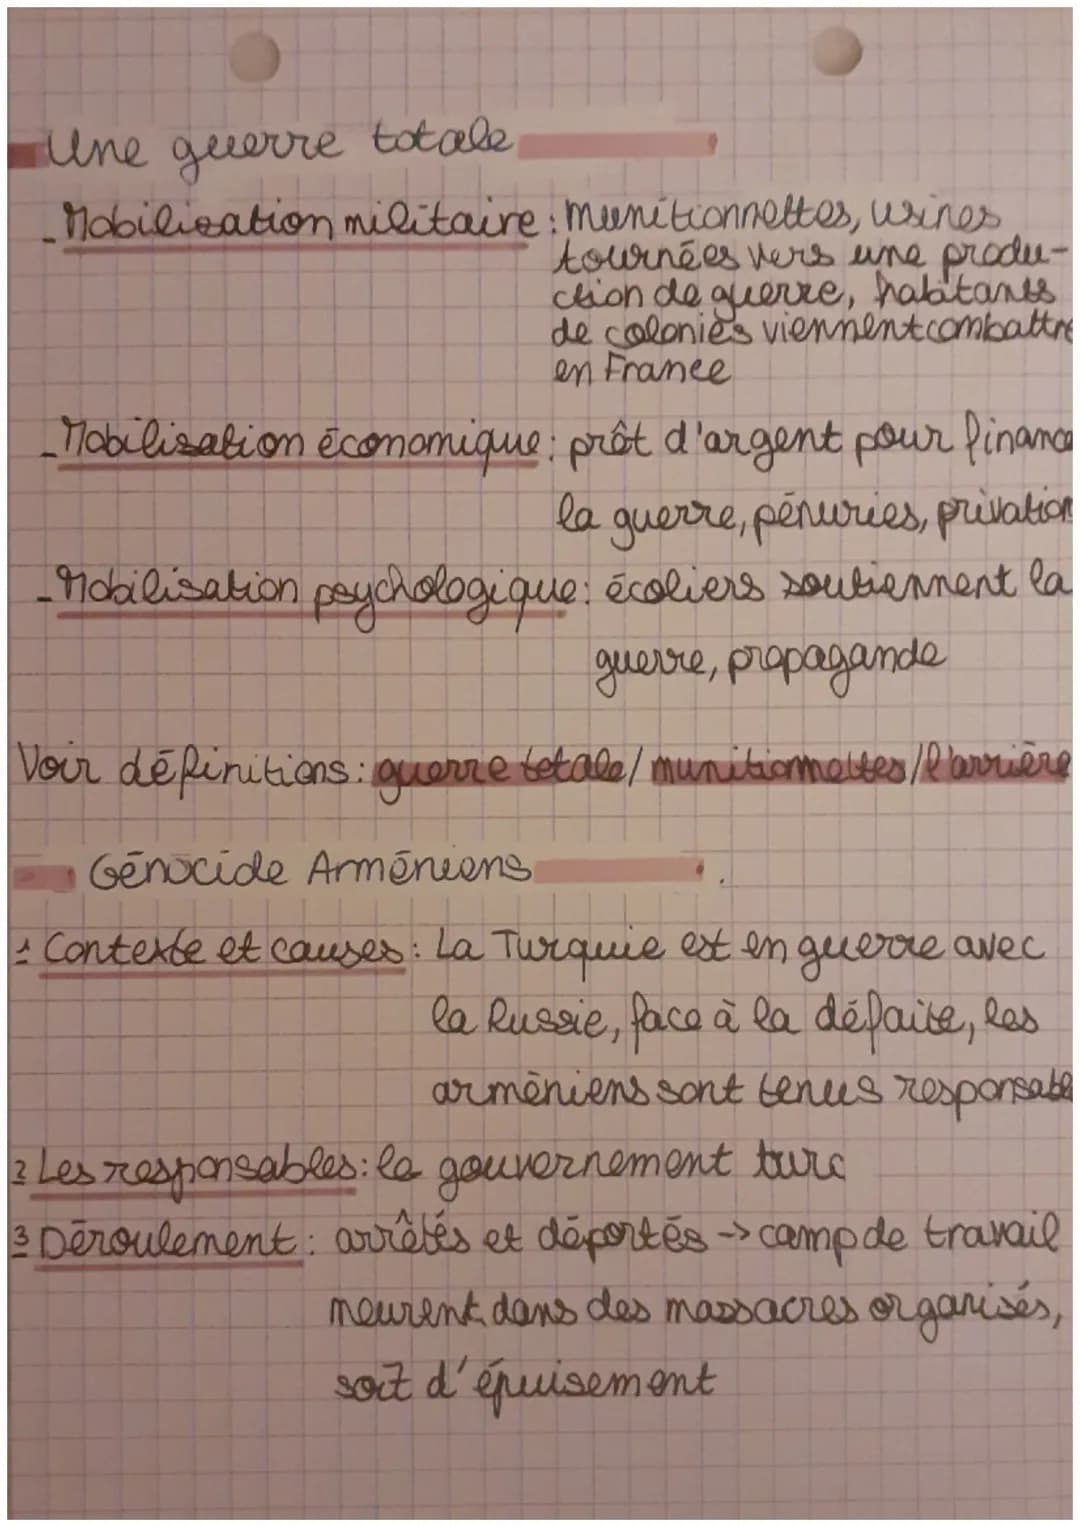 Une guerre totale
- Mobilisation militaire : munitionnettes, usines
tournées vers une produ-
ction de guerre, habitants
de colonies viennent combattre
en France
- Mobilisation économique : prêt d'argent pour finance
la guerre, pénuries, privation
- Mobilisation psychologique : écoliers soutiennent la
guerre, propagande
Voir définitions : guerre totale / munitionnettes / l'arrière
Génocide Arméniens
1 Contexte et causes : La Turquie est en guerre avec
la Russie, face à la défaite, les
arméniens sont tenus responsable
2 Les responsables : le gouvernement turc
3 Déroulement : arrêtés et déportés -> camp de travail
meurent dans des massacres organisés,
soit d'épuisement